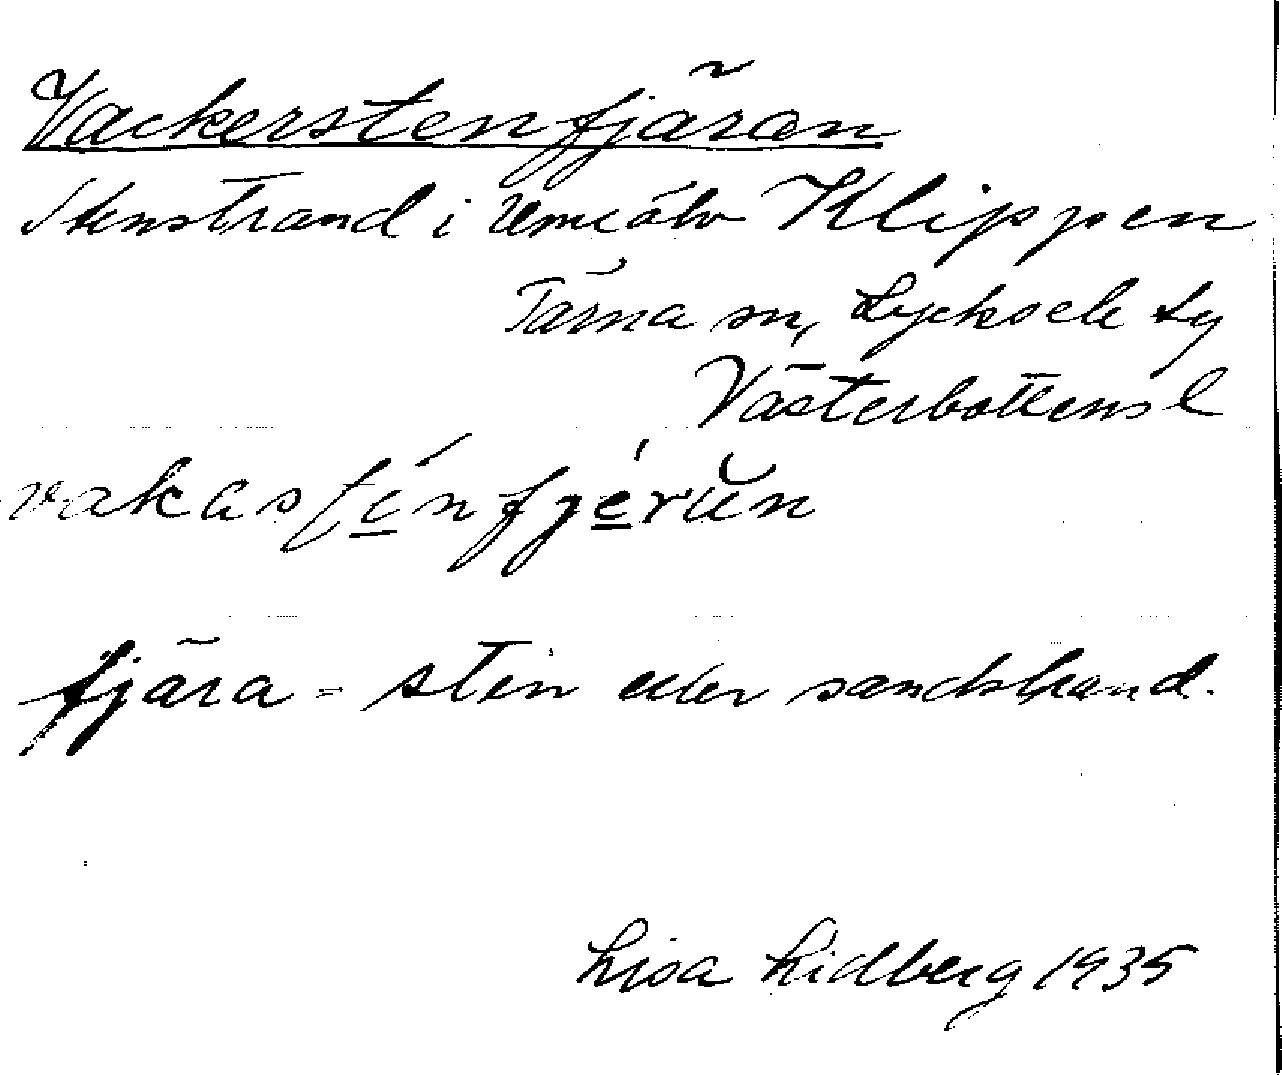 Vackerstenfjäran
Stenstrand i Umeälv Klippen
Tärna sn, Lycksele Ly
Västerbottens l
fjära - sten eller sandstrand.
Lisa Lidberg 1935